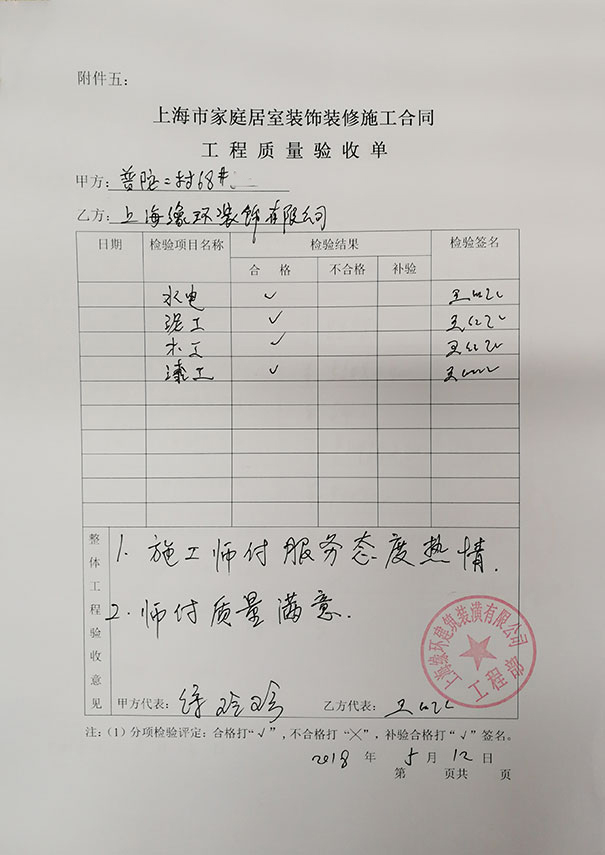 附件五：
上海市家庭居室装饰装修施工合同
工程质量验收单
甲方：普陀二村68#
乙方：上海缘环装饰有限公司
日期 检验项目名称 检验结果 检验签名
合格 不合格 补验
水电 ✓
泥工 ✓
木工 ✓
漆工 ✓
整体工程验收意见
1. 施工师付服务态度热情.
2. 师付质量满意.
上海缘环建筑装潢有限公司
工程部
甲方代表： 乙方代表：
注：（1）分项检验评定：合格打“√”，不合格打“╳”，补验合格打“√”签名。
2018 年 5 月 12 日
第 页共 页